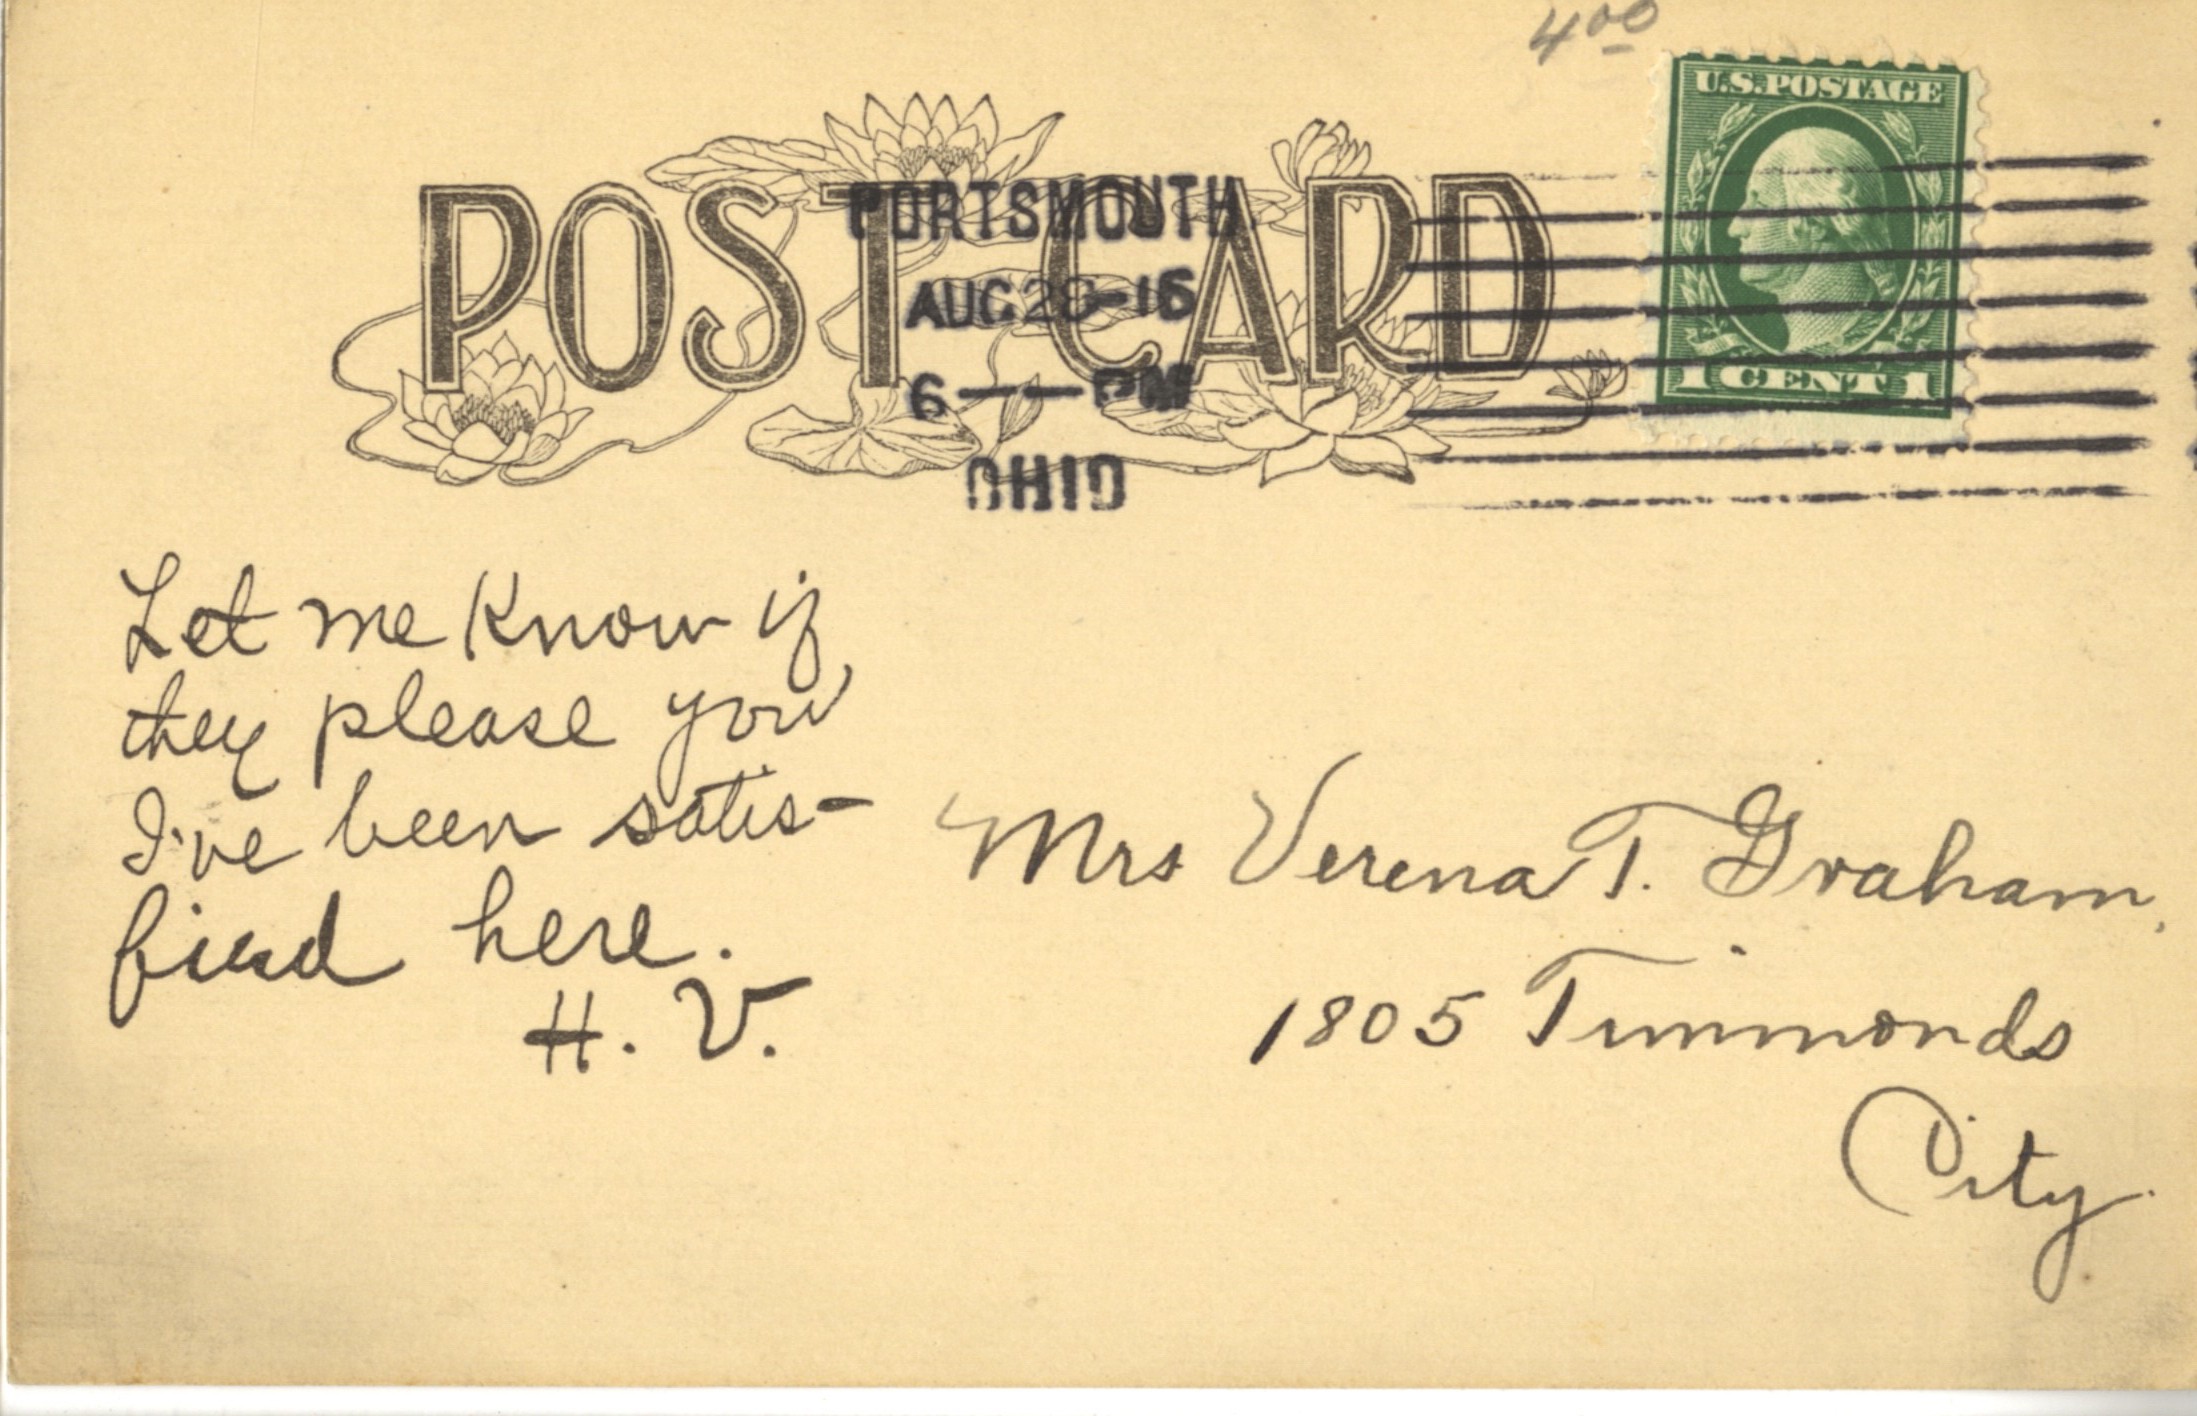 4.00
U.S. POSTAGE
POST CARD
PORTSMOUTH
AUG 28-16
6 — PM
OHIO
1 CENT 1
Let me know if
they please you
I've been satis-
fied here.
H. V.
Mrs Verena T. Graham,
1805 Timmonds
City.